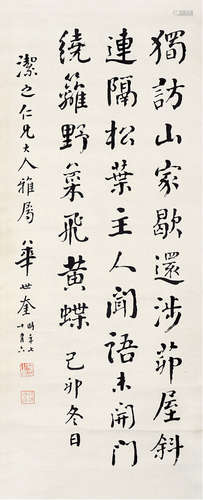 獨訪山家歇還涉茆屋斜
連隔松葉主人聞語未開門
繞籬野菜飛黃蝶 己卯冬日
潔之仁兄大人雅屬 華世奎 時年七十有六